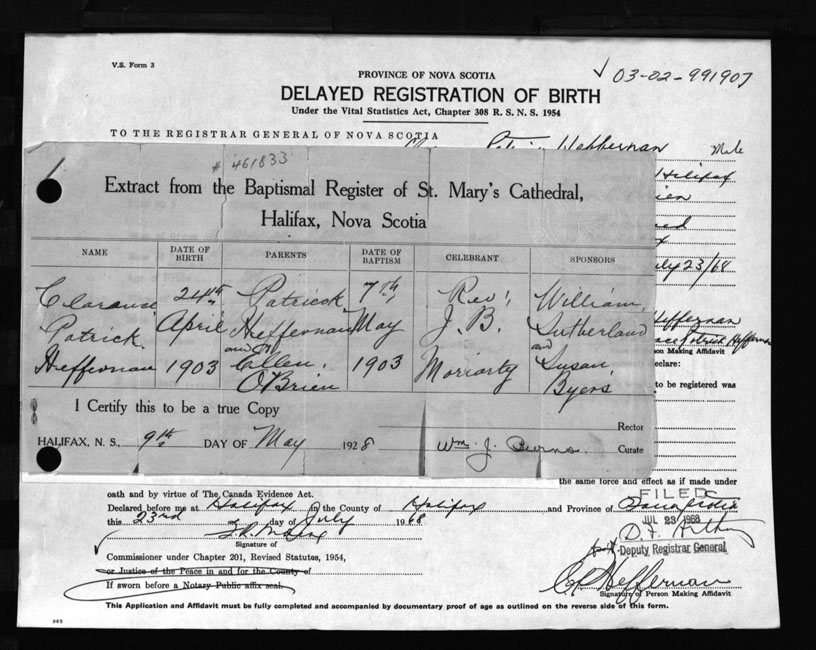 V.S. Form 3
03-02-991907
PROVINCE OF NOVA SCOTIA
DELAYED REGISTRATION OF BIRTH
Under the Vital Statistics Act, Chapter 308 R. S. N. S. 1954
TO THE REGISTRAR GENERAL OF NOVA SCOTIA
Heffernan Male
# 461833
Extract from the Baptismal Register of St. Mary's Cathedral,
Halifax, Nova Scotia
Halifax
July 23/68
NAME DATE OF BIRTH PARENTS DATE OF BAPTISM CELEBRANT SPONSORS
Clarence 24th Patrick 7th Rev. William
Patrick April Heffernan May J. B. Sutherland
Heffernan 1903 and Ellen O'Brien 1903 Moriarty and Susan Byers
Heffernan
Patrick Heffernan
Person Making Affidavit
declare:
to be registered was
I Certify this to be a true Copy
Rector
HALIFAX, N. S., 9th DAY OF May 1928 Wm. J. Burns Curate
the same force and effect as if made under
oath and by virtue of The Canada Evidence Act.
FILED
Declared before me at Halifax in the County of Halifax and Province of Nova Scotia
this 23rd day of July 1968
JUL 23 1968
Signature of
Deputy Registrar General
Commissioner under Chapter 201, Revised Statutes, 1954,
or Justice of the Peace in and for the County of
If sworn before a Notary Public affix seal.
Heffernan
Signature of Person Making Affidavit
This Application and Affidavit must be fully completed and accompanied by documentary proof of age as outlined on the reverse side of this form.